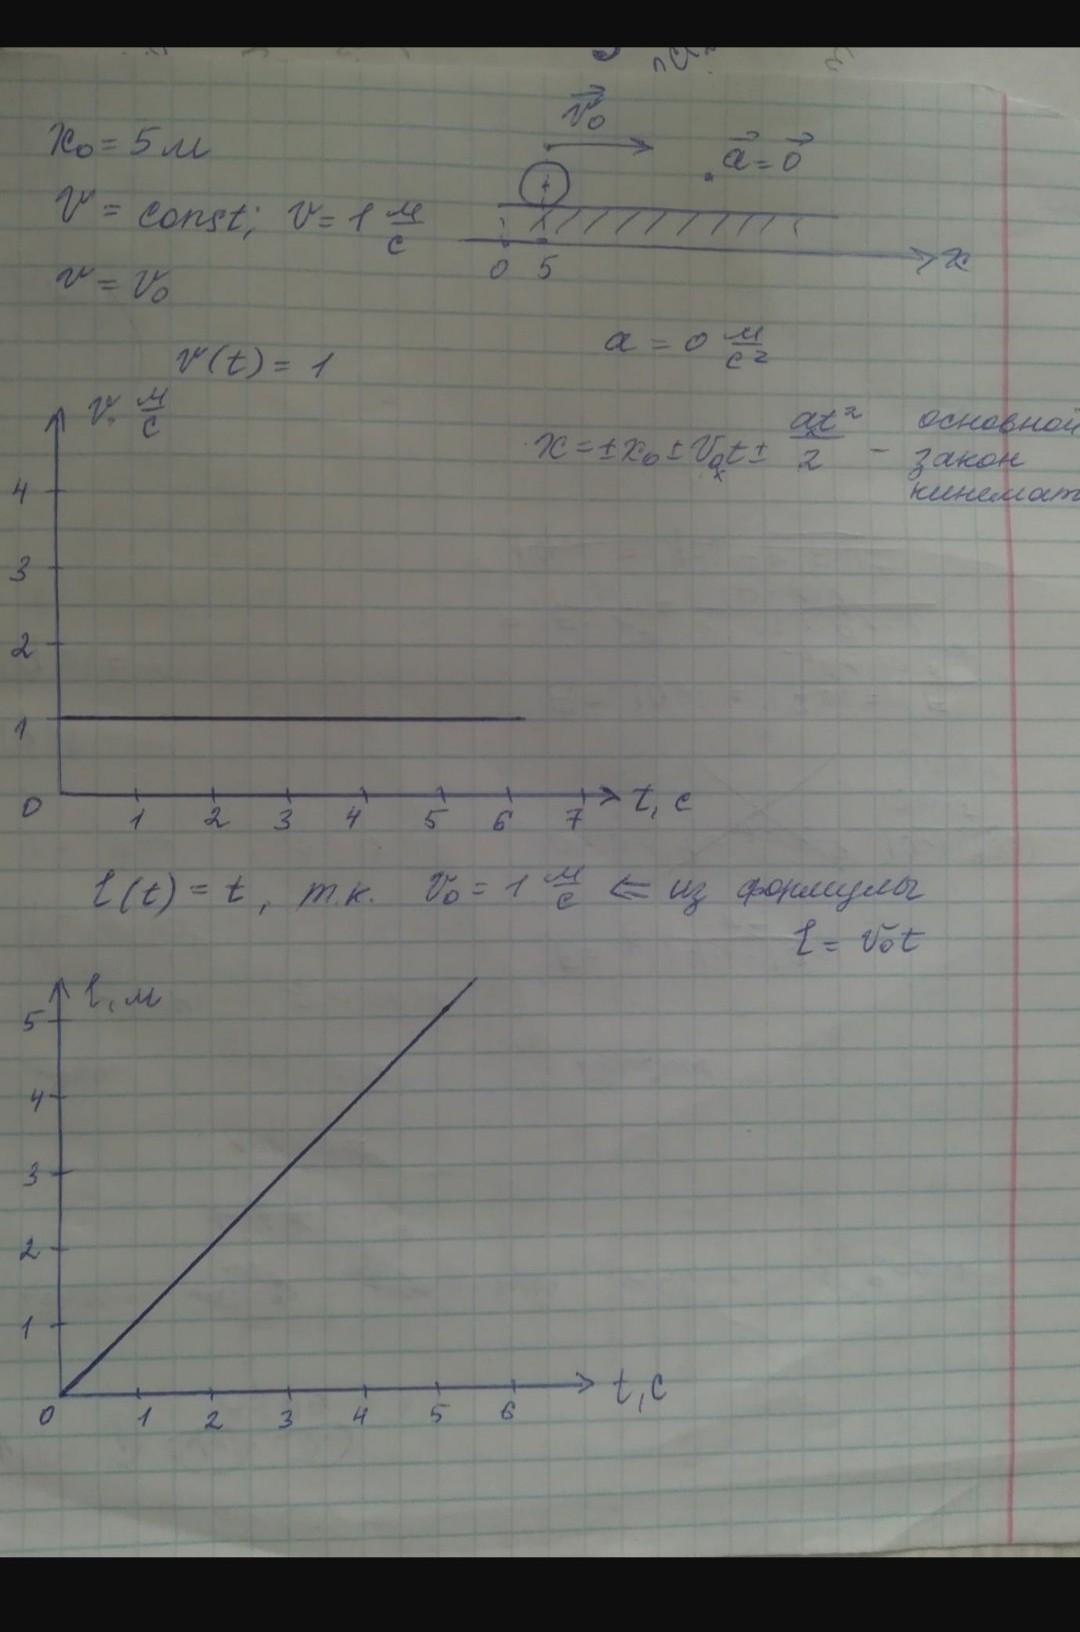 x₀ = 5 м
v⃗₀
a⃗ = 0⃗
v = const; v = 1 м/с
0 5 x
v = v₀
v(t) = 1
a = 0 м/с²
v, м/с
x = ± x₀ ± v₀ₓt ± aₓt²/2 – основной
закон
кинемат
4
3
2
1
0 1 2 3 4 5 6 7 t, с
l(t) = t, т.к. v₀ = 1 м/с ⇐ из формулы
l = v₀t
l, м
5
4
3
2
1
0 1 2 3 4 5 6 t, с